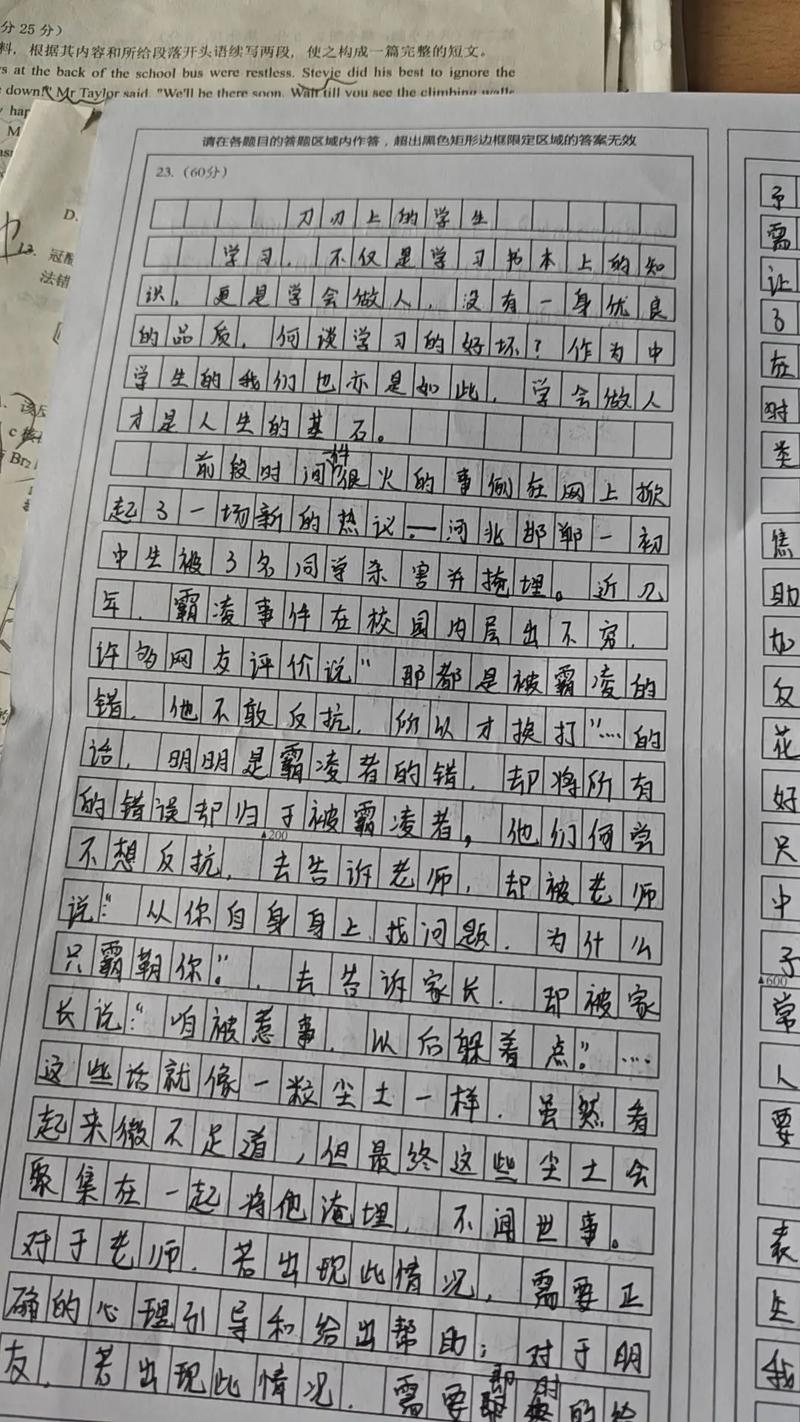 分 25 分）
料，根据其内容和所给段落开头语续写两段，使之构成一篇完整的短文。
s at the back of the school bus were restless. Stevie did his best to ignore the
down!" Mr Taylor said. "We'll be there soon. Wait till you see the climbing walls
请在各题目的答题区域内作答，超出黑色矩形边框限定区域的答案无效
23.（60分）
刀刃上的学生
学习，不仅是学习书本上的知
识，更是学会做人，没有一身优良
的品质，何谈学习的好坏？作为中
学生的我们也亦是如此，学会做人
才是人生的基石。
前段时间一件很火的事例在网上掀
起了一场新的热议——河北邯郸一初
中生被3名同学杀害并掩埋。近几
年，霸凌事件在校园内层出不穷，
许多网友评价说"那都是被霸凌的
错，他不敢反抗，所以才挨打"…的
话，明明是霸凌者的错，却将所有
的错误却归于被霸凌者，他们何尝
▲200
不想反抗，去告诉老师，却被老师
说："从你自身身上找问题，为什么
只霸朝你"。，去告诉家长，却被家
长说："咱被惹事，以后躲着点"。…
这些话就像一粒尘土一样，虽然看
起来微不足道，但最终这些尘土会
聚集在一起将他淹埋，不闻世事。
对于老师，若出现此情况，需要正
确的心理引导和给出帮助；对于朋
友，若出现此情况，需要即时的给
予
需
让
了
在
对
类
焦
助
加
反
花
好
只
中
予
▲600
常
人
要
表
生
我